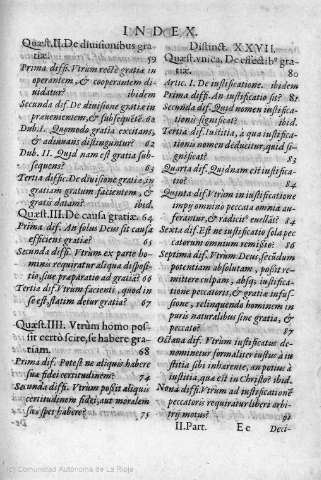 INDEX.
Quæst.II. De diuisionibus gra
tiæ. 59
Prima diff. Vtrùm rectè gratia in
operantem, & cooperantem di
uidatur? ibidem
Secunda dif. De diuisone gratiæ in
præuenientem, & subsequētē. 62
Dub. I. Quomodo gratia excitans,
& adiuuans distinguntur? 62
Dub. II. Quid nam est gratia sub-
sequens? 63
Tertia diffic. De diuisione gratiæ, in
gratiam gratum facientem, &
gratis datam? ibid.
Quæst.III. De causa gratiæ. 64
Prima dif. An solus Deus sit causa
efficiens gratiæ? 65
Secunda diff. Vtrùm ex parte ho-
minis requiratur aliqua disposi-
tio, siue præparatio ad gratiam? 66
Tertia dif. Vtrùm facienti, quod in
se est, statim detur gratia? 67
Quæst.IIII. Vtrùm homo pos
sit certò scire, se habere gra
tiam. 68
Prima dif. Potest ne aliquis habere
suæ fidei certitudinem? 74
Secunda diff. Vtrùm possit aliquis
certitudinem fidei, aut moralem
suæ spei habere? 75
Distinct. XXVII.
Quæst.vnica. De effectibº gra
tiæ. 80
Artic. I. De iustificatione. ibidem
Prima diff. An iustificatio sit? 81
Secunda dif. Quid nomen iustifica-
tionis significet? ibid.
Tertia dif. Iustitia, à qua iustifica-
tionis nomen deducitur, quid si-
gnificat? 83
Quarta dif. Quidnam est iustifica-
tio? 84
Quinta dif. Vtrùm in iustificatione
impij omnino peccata omnia au-
ferantur, & radicitº euellãt? 84
Sexta dif. Est ne iustificatio sola pec
catorum omnium remissio? 86
Septima dif. Vtrùm Deus, secũdum
potentiam absolutam, possit re-
mittere culpam, absque iustifica-
tione peccatoris, & gratiæ infus-
sione, relinquendo hominem in
puris naturalibus sine gratia, &
peccato? 87
Octaua dif. Vtrùm iustificatus de-
nominetur formaliter iustus à iu
stitia sibi inhærente, an potius à
iustitia, quæ est in Christo? ibid.
Nona diff. Vtrùm ad iustificationē
peccatoris requiratur liberi arbi-
trij motus? 91
II. Part. E e Deci-
(c) Comunidad Autónoma de La Rioja